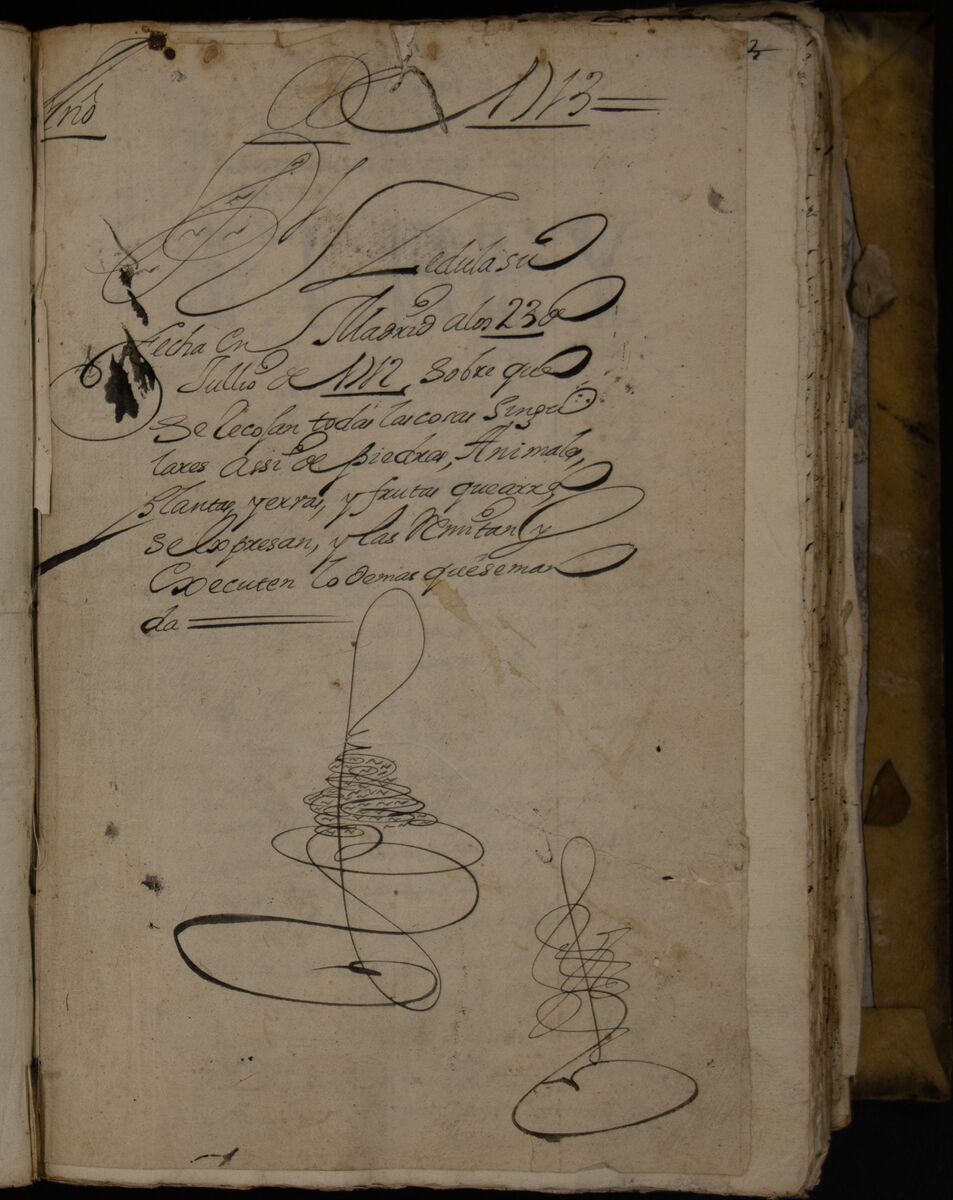 3
Año de 1713
Rl Zedula su
fecha en Madrid a los 23 de
Jullio de 1712, sobre que
se lecojan todas las cosas singu
lares assi de piedras, Animales,
Plantas, yervas, y frutas que arrᵃ
se expresan, y las Remitan y
executen lo demas que se man
da